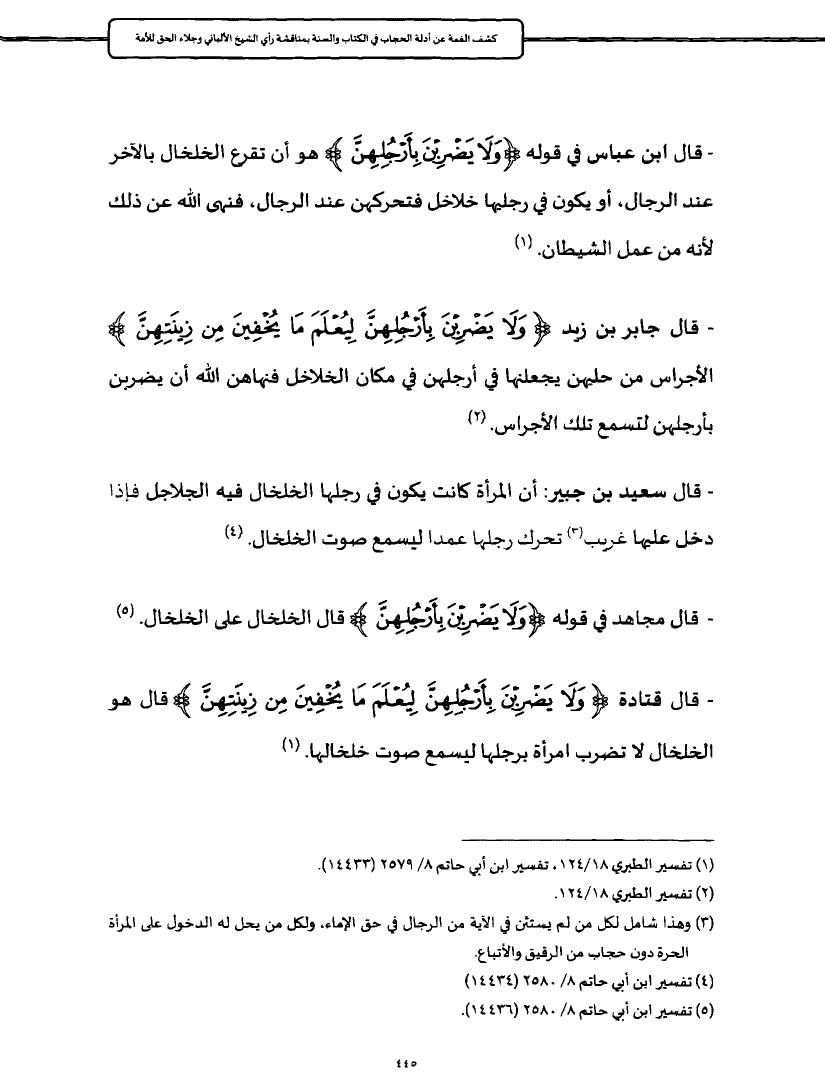 كشف الغمة عن أدلة الحجاب في الكتاب والسنة بمناقشة رأي الشيخ الألباني وجلاء الحق للأمة
- قال ابن عباس في قوله ﴿وَلَا يَضْرِبْنَ بِأَرْجُلِهِنَّ﴾ هو أن تقرع الخلخال بالآخر
عند الرجال، أو يكون في رجليها خلاخل فتحركهن عند الرجال، فنهى الله عن ذلك
لأنه من عمل الشيطان. (١)
- قال جابر بن زيد ﴿وَلَا يَضْرِبْنَ بِأَرْجُلِهِنَّ لِيُعْلَمَ مَا يُخْفِينَ مِن زِينَتِهِنَّ﴾
الأجراس من حليهن يجعلنها في أرجلهن في مكان الخلاخل فنهاهن الله أن يضربن
بأرجلهن لتسمع تلك الأجراس. (٢)
- قال سعيد بن جبير: أن المرأة كانت يكون في رجلها الخلخال فيه الجلاجل فإذا
دخل عليها غريب(٣) تحرك رجلها عمدا ليسمع صوت الخلخال. (٤)
- قال مجاهد في قوله ﴿وَلَا يَضْرِبْنَ بِأَرْجُلِهِنَّ﴾ قال الخلخال على الخلخال. (٥)
- قال قتادة ﴿وَلَا يَضْرِبْنَ بِأَرْجُلِهِنَّ لِيُعْلَمَ مَا يُخْفِينَ مِن زِينَتِهِنَّ﴾ قال هو
الخلخال لا تضرب امرأة برجلها ليسمع صوت خلخالها. (١)
(١) تفسير الطبري ١٢٤/١٨، تفسير ابن أبي حاتم ٨/ ٢٥٧٩ (١٤٤٣٣).
(٢) تفسير الطبري ١٢٤/١٨.
(٣) وهذا شامل لكل من لم يستثن في الآية من الرجال في حق الإماء، ولكل من يحل له الدخول على المرأة
الحرة دون حجاب من الرقيق والأتباع.
(٤) تفسير ابن أبي حاتم ٨/ ٢٥٨٠ (١٤٤٣٤)
(٥) تفسير ابن أبي حاتم ٨/ ٢٥٨٠ (١٤٤٣٦).
٤٤٥